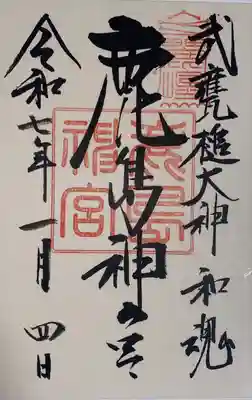 武甕槌大神 和魂
鹿島神宮
鹿島神宮
令和七年一月四日